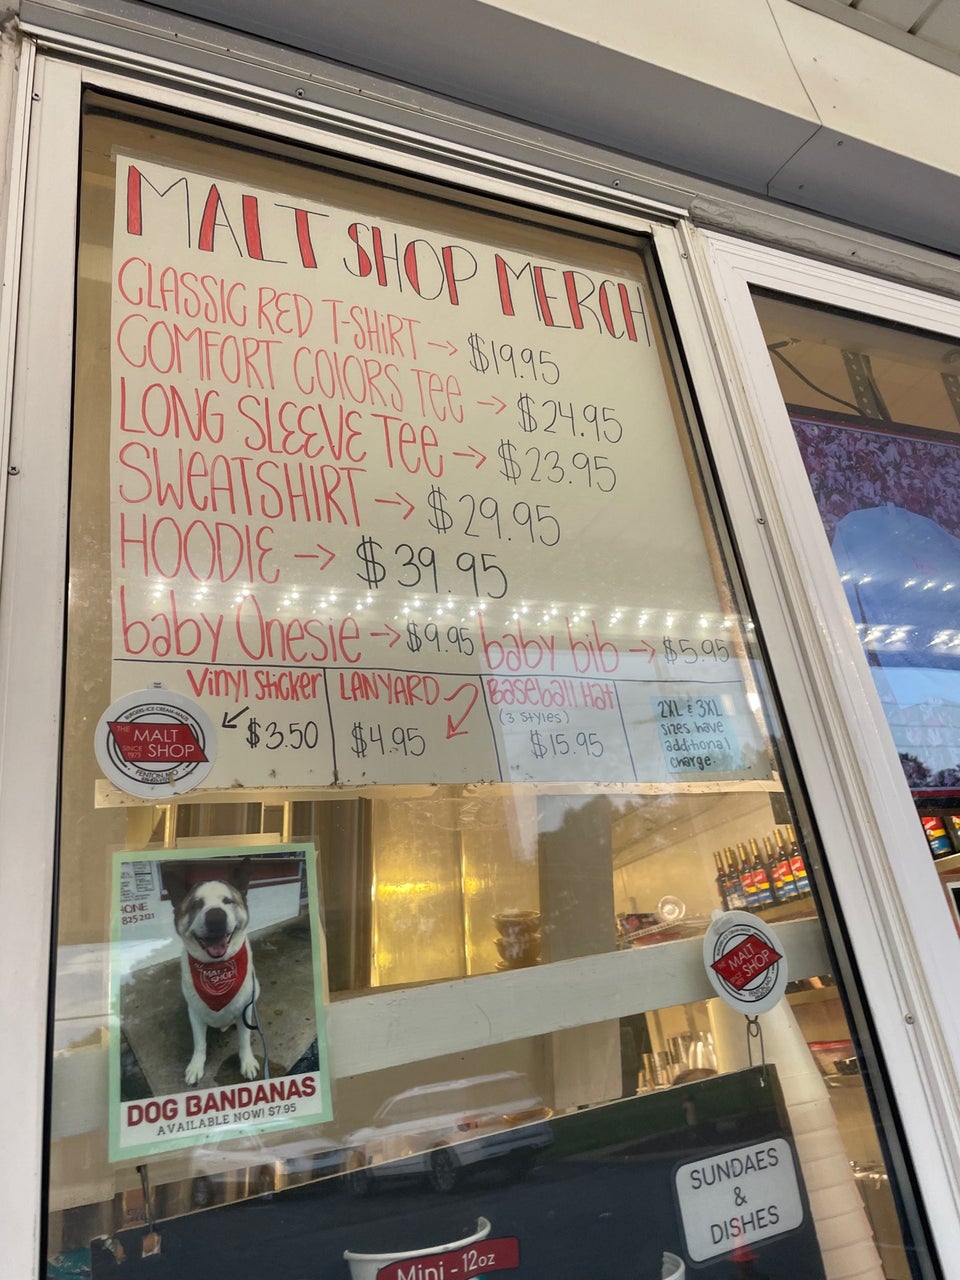 MALT SHOP MERCH
CLASSIC RED T-SHIRT → $19.95
COMFORT COLORS TEE → $24.95
LONG SLEEVE TEE → $23.95
SWEATSHIRT → $29.95
HOODIE → $39.95
baby Onesie → $9.95 baby bib → $5.95
Vinyl Sticker
$3.50
LANYARD
$4.95
Baseball Hat
(3 styles)
$15.95
2XL & 3XL
sizes have
additional
charge.
BURGERS-ICE CREAM-MALTS
THE
MALT
SHOP
SINCE
1973
FENTON, MO
HONE
825 2121
MALT
SHOP
DOG BANDANAS
AVAILABLE NOW! $7.95
THE
MALT
SHOP
FENTON, MO
SUNDAES
&
DISHES
Mini - 12oz